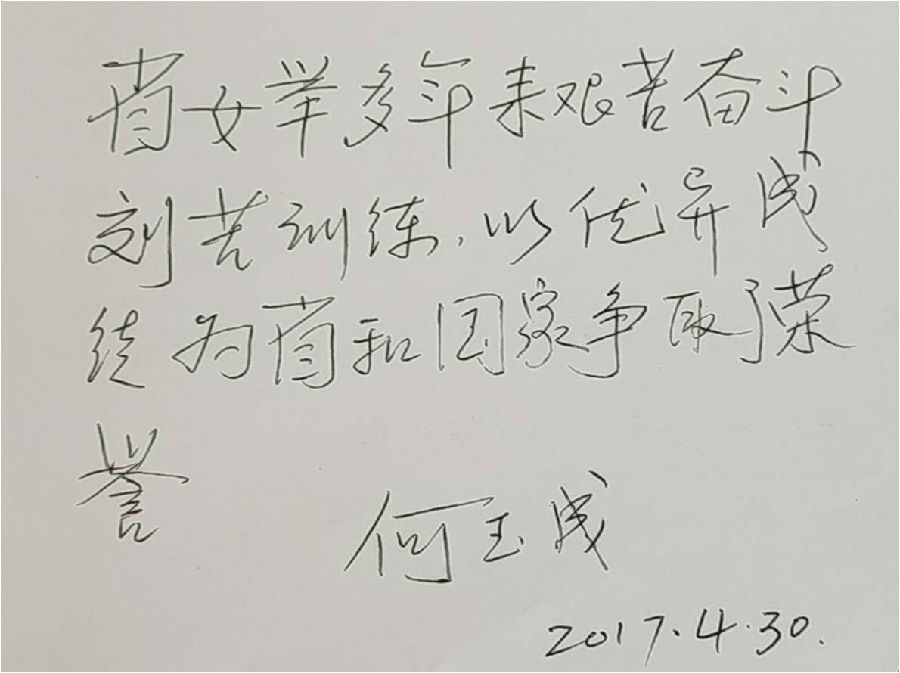 省女举多年来艰苦奋斗
刻苦训练,以优异成
绩为省和国家争取了荣
誉
何玉成
2017.4.30.